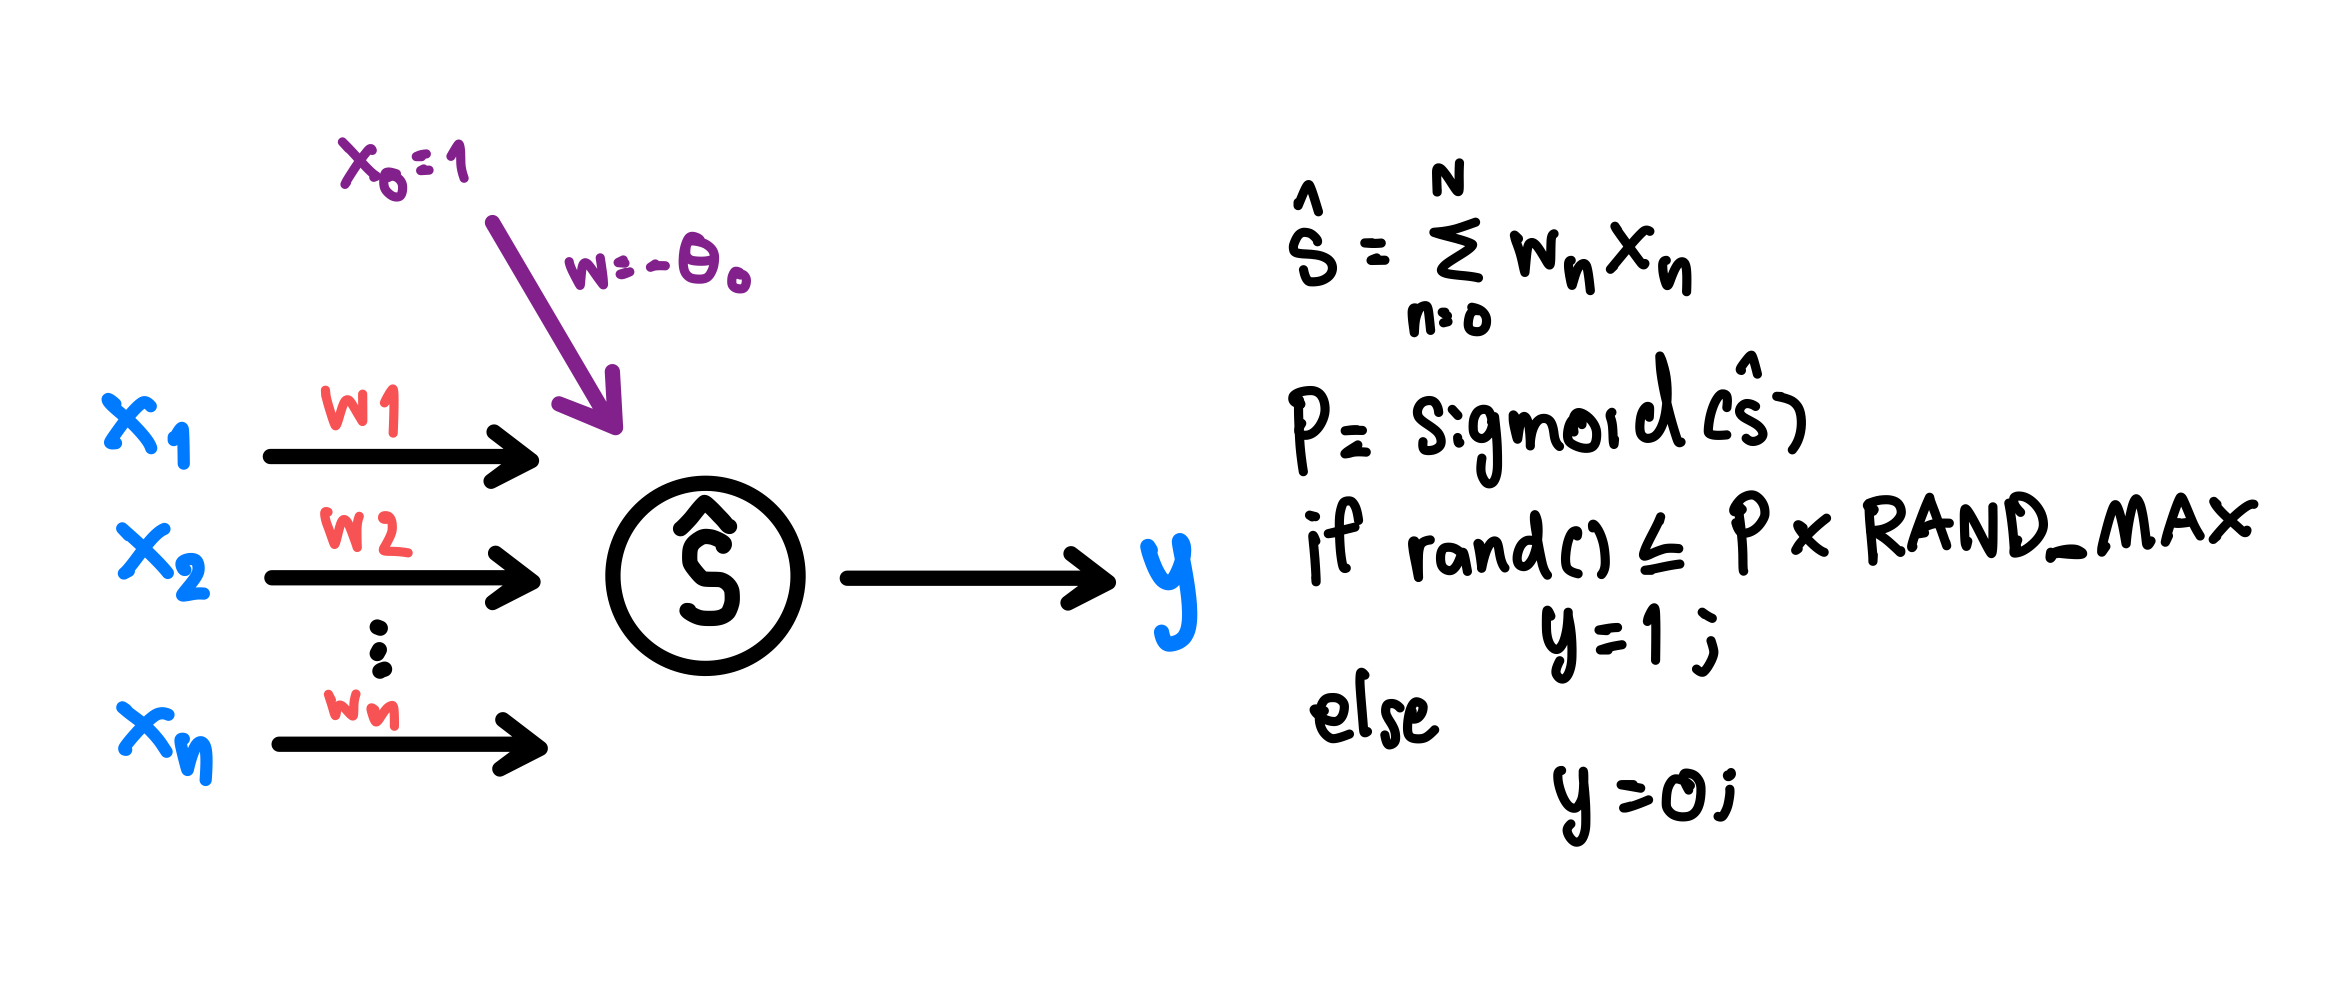 x₀=1
w=-θ₀
x₁
w1
x₂
w2
⋮
xₙ
wₙ
Ŝ
y
N
ŝ = Σ wₙxₙ
n=0
P= sigmoid(ŝ)
if rand() ≤ P × RAND_MAX
y=1;
else
y=0;